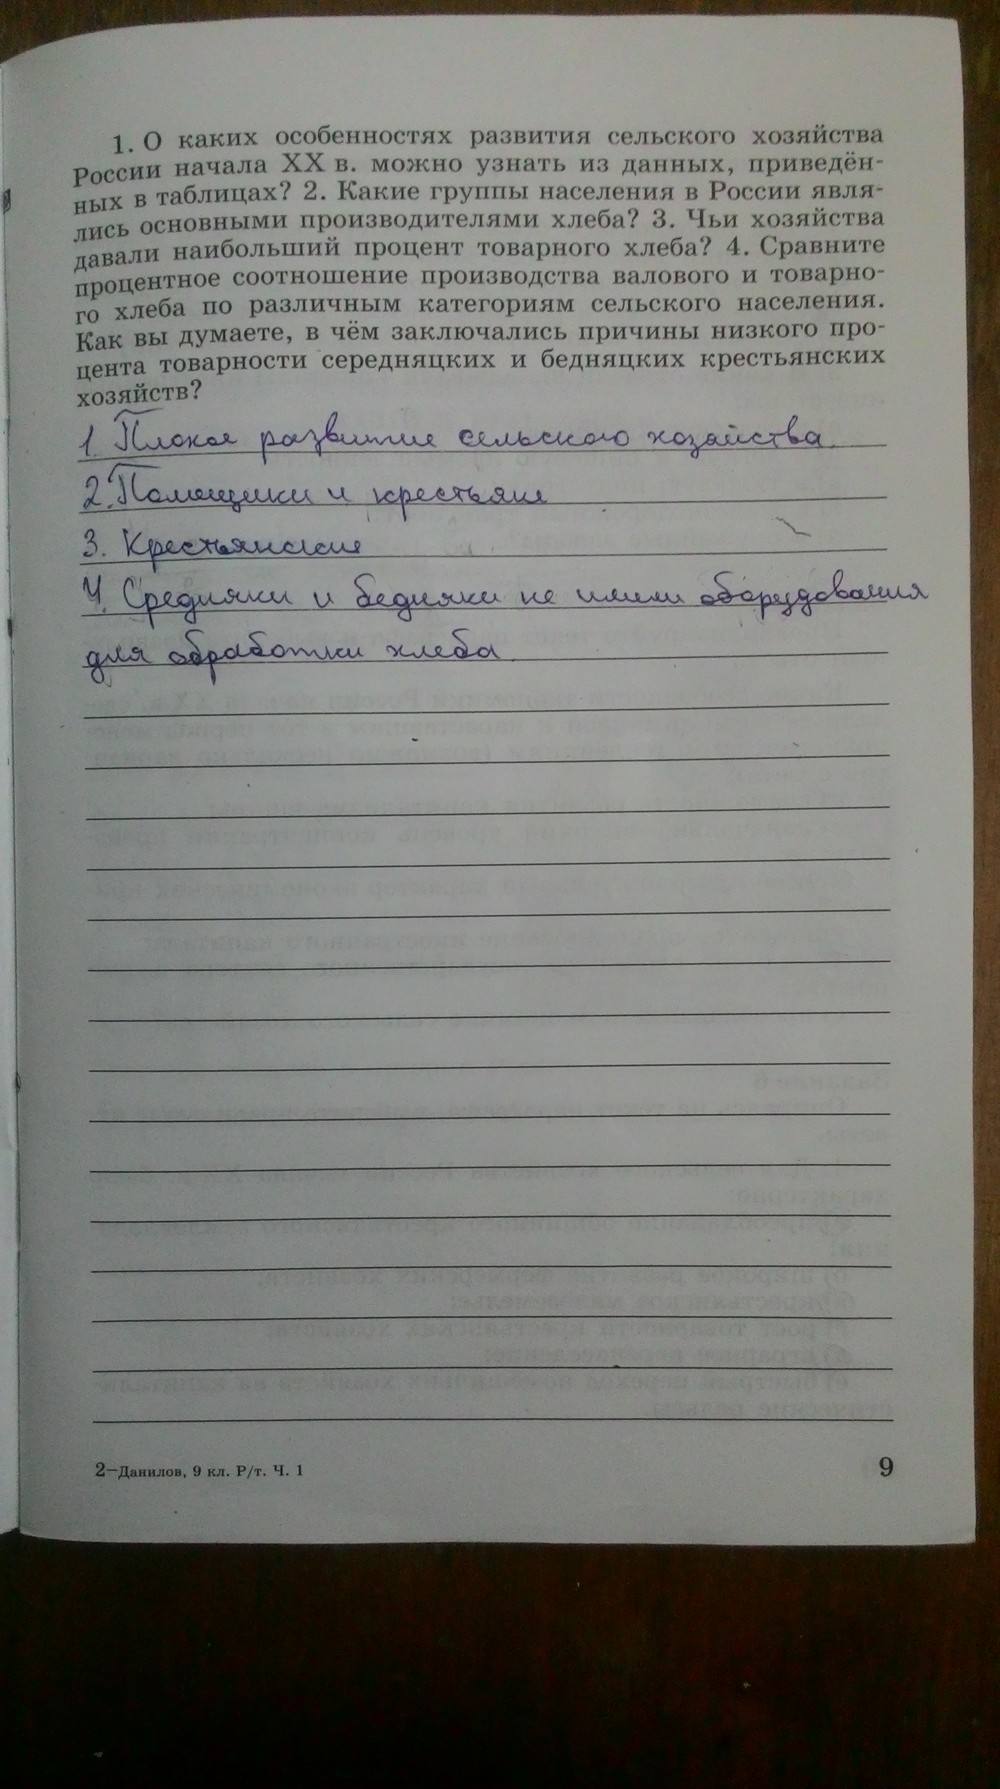 1. О каких особенностях развития сельского хозяйства
России начала XX в. можно узнать из данных, приведён-
ных в таблицах? 2. Какие группы населения в России явля-
лись основными производителями хлеба? 3. Чьи хозяйства
давали наибольший процент товарного хлеба? 4. Сравните
процентное соотношение производства валового и товарно-
го хлеба по различным категориям сельского населения.
Как вы думаете, в чём заключались причины низкого про-
цента товарности середняцких и бедняцких крестьянских
хозяйств?
1. Плохое развитие сельского хозяйства.
2. Помещики и крестьяне
3. Крестьянские
4. Средняки и бедняки не имели оборудования
для обработки хлеба.
2—Данилов, 9 кл. Р/т. Ч. 1
9